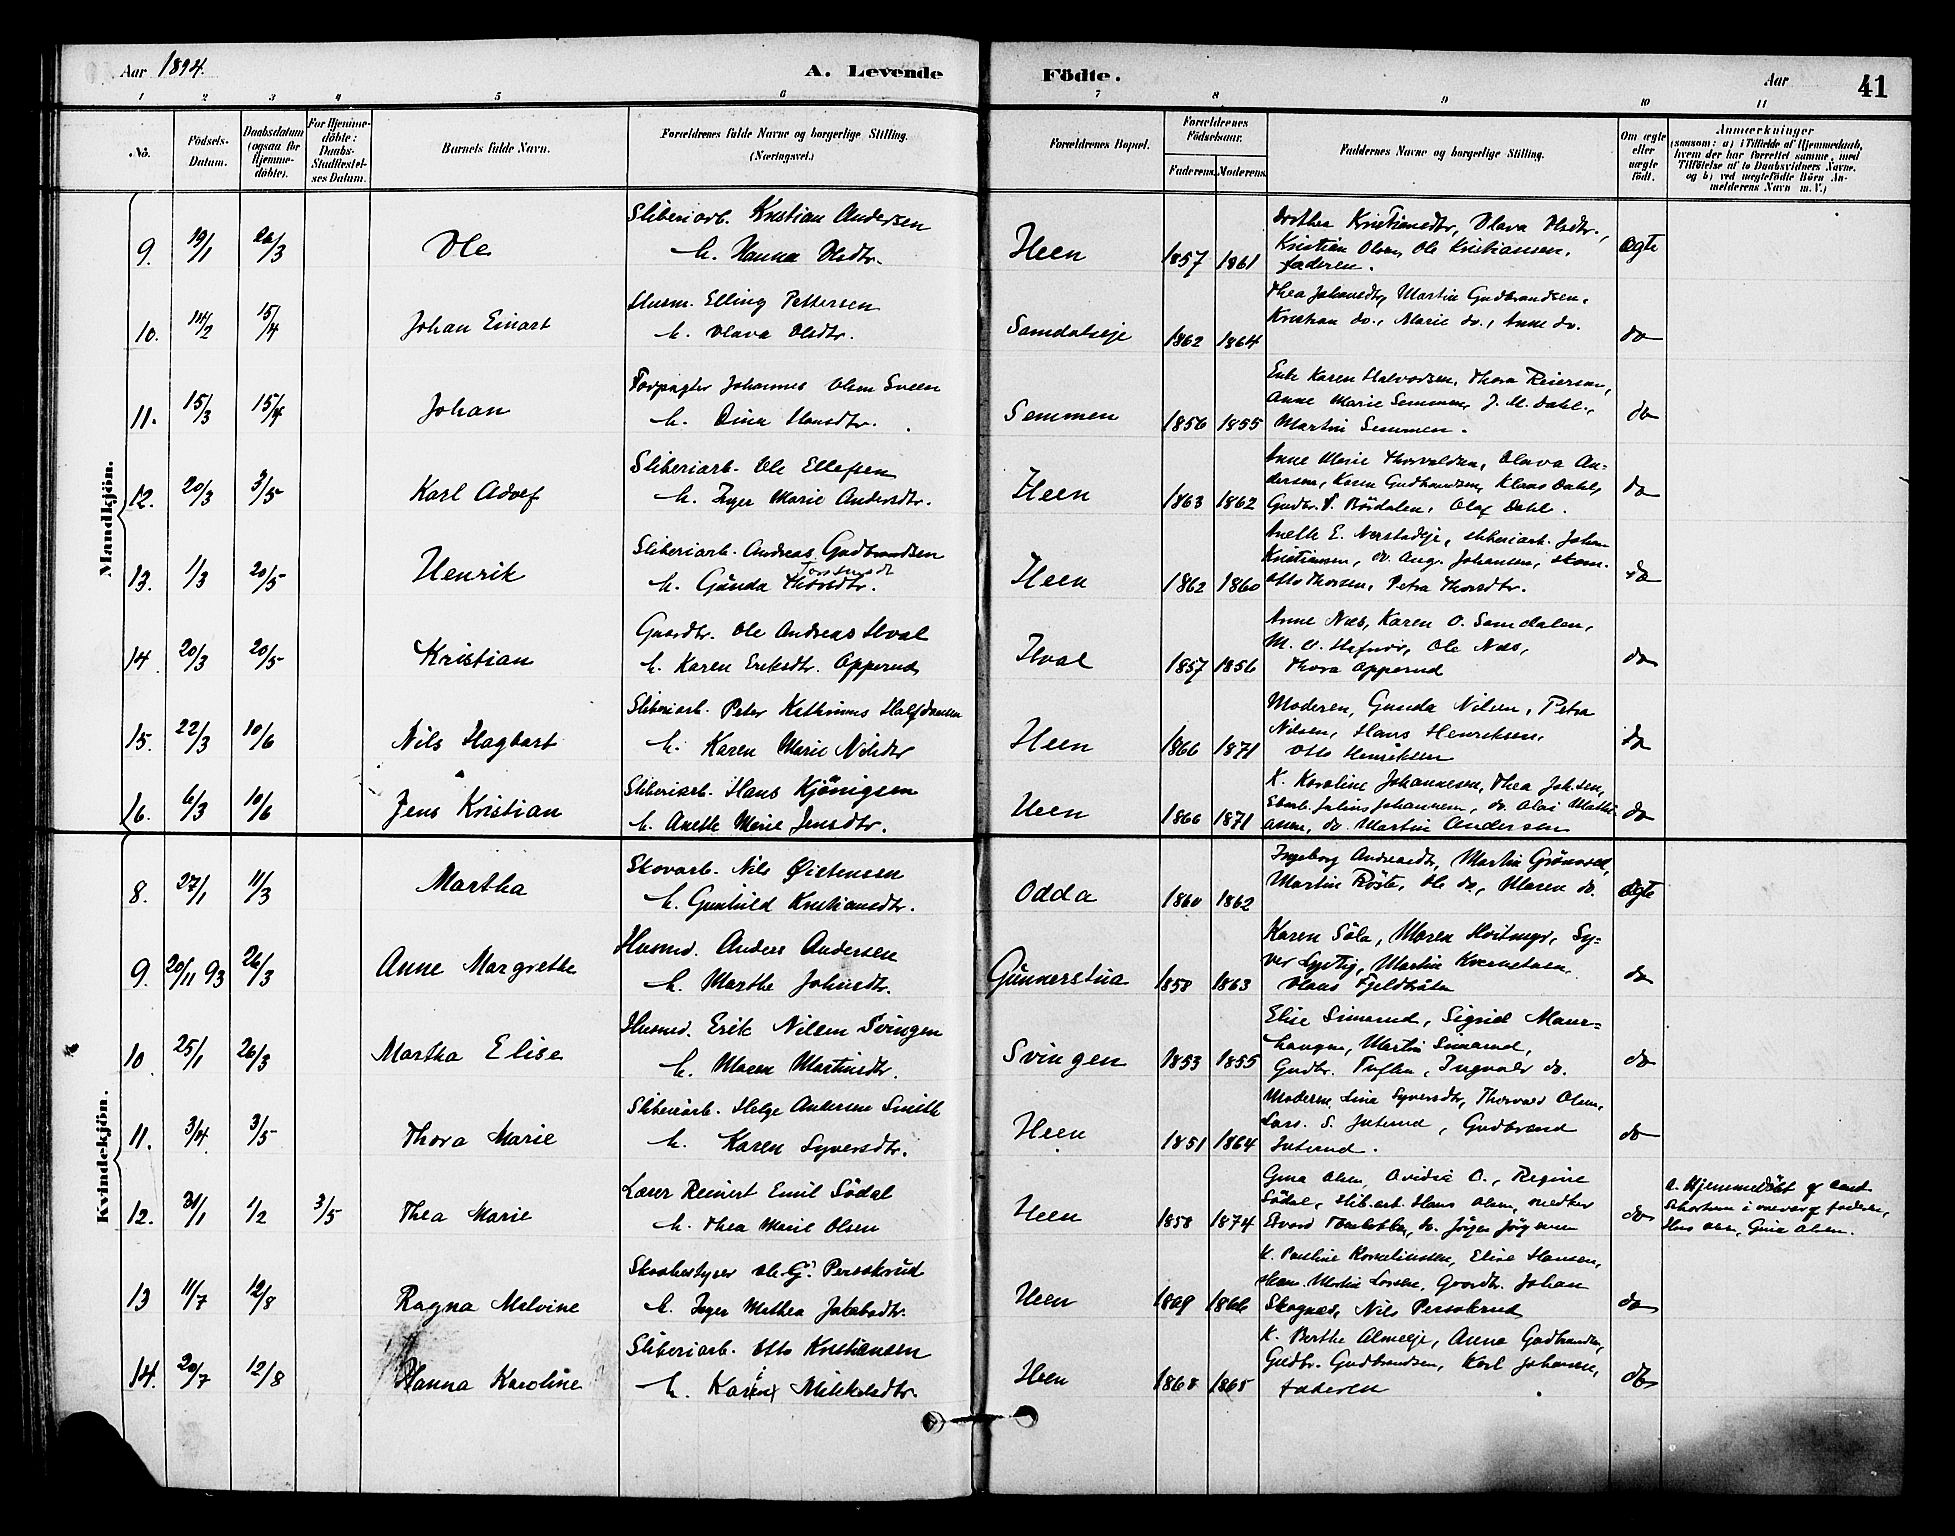 Aar 1894.
A. Levende
Födte.
Aar
41
1 2 3 4 5 6 7 8 9 10 11
No.
Födsels-
Datum.
Daabsdatum
(ogsaa for
Hjemme-
döbte).
For Hjemme-
döbte:
Daabs-
Stadfæstel-
ses Datum.
Barnets fulde Navn.
Forældrenes fulde Navne og borgerlige Stilling.
(Næringsvei.)
Forældrenes Bopæl.
Forældrenes
Födselsaar.
Faderens. Moderens.
Faddernes Navne og borgerlige Stilling.
Om ægte
eller
uægte
födt.
Anmærkninger
(saasom: a) i Tilfælde af Hjemmedaab,
hvem der har forrettet samme, med
Tilföielse af to Daabsvidners Navne,
og b) ved uægtefödte Börn An-
melderens Navn m. V.)
Mandkjön.
9. 19/1 26/3 Ole
Sliberiarb. Kristian Andersen
h. Hanna Olsdtr.
Heen 1857 1861
Dorthea Kristiansdtr, Olava Olsdtr.,
Kristian Olsen, Ole Kristiansen,
faderen.
Ægte
10. 14/2 15/4 Johan Einart
Husm. Elling Pettersen
h. Olava Olsdtr.
Samdalseje 1862 1864
Thea Johansdtr, Martin Gudbrandsen,
Kristian do., Marie do., Anne do.
do
11. 15/3 15/4 Johan
Forpagter Johannes Olsen Sveen
h. Dina Hansdtr.
Semmen 1856 1855
Enke Karen Halvorsen, Thora Reiersen,
Anne Marie Semmen, J. M. Dahl.,
Martin Semmen.
do
12. 20/3 3/5 Karl Adolf
Sliberiarb. Ole Ellefsen
h. Inger Marie Andersdtr.
Heen 1863 1862
Anne Marie Thorvaldsen, Olava An-
dersen, Karen Gudbrandsen, Klaus Dahl,
Gudbr. P. Bördalen, Olaf Dahl.
do
13. 1/3 20/5 Henrik
Sliberiarb. Andreas Gudbrandsen
h. Gunda Thorsdtr.
Heen 1862 1860
Anette E. Nerstadeje, sliberiarb. Johan
Kristiansen, do. Aug. Johansen, skom.
Otto Thorsen, Petra Thorsdtr.
do
14. 20/3 20/5 Kristian
Gaardbr. Ole Andreas Hval
h. Karen Eriksdtr. Opperud
Hval 1857 1856
Anne Næs, Karen O. Samdalen,
Ole Næs,
Thora Opperud
do
15. 22/3 10/6 Nils Hagbart
Sliberiarb. Peter Kathinus Halfdansen
h. Karen Marie Nilsdtr
Heen 1866 1871
Moderen, Gunda Nilsen, Petra
Nilsen, Hans Henriksen,
Otto Henriksen
do
16. 6/3 10/6 Jens Kristian
Sliberiarb. Hans Kjönigsen
h. Anette Marie Jensdtr.
Heen 1866 1871
K. Karoline Johannesen, Thea Johsen,
Sliberib. Julius Johannesen, do. Olai Mathi-
asen, do. Martin Andersen
do
Kvindekjön.
8. 27/1 11/3 Martha
Skovarb. Nils Östensen
h. Gunhild Kristiansdtr.
Odda 1860 1862
Ingeborg Andreasdtr, Martin Grönvold,
Martin Röste, Ole do, Maren do.
Ægte
9. 20/11 93 26/3 Anne Margrethe
Husmd. Anders Andersen
h. Marthe Johnsdtr.
Gunnerstua 1858 1863
Karen Söla, Maren Hvitmyr, Sy-
ver Lystig, Martin Kvernetuen,
Olaus Fjeldhöten
do
10. 25/1 26/3 Martha Elise
Husmd. Erik Nilsen Svingen
h. Maren Martinsdtr.
Svingen 1853 1855
Elise Simarud, Sigrid Maur-
haugen, Martin Simarud,
Gudbr. Tuften, Ingvald do.
do
11. 3/4 3/5 Thora Marie
Sliberiarb. Helge Andersen Smith
h. Karen Syversdtr.
Heen 1851 1864
Moderen, Lina Syversdtr, Thorvald Olsen,
Lars S. Juterud, Gudbrand
Juterud.
do
12. 31/1 1/2 3/5 Thea Marie
Lærer Reinert Emil Södal
h. Thea Marie Olsen
Heen 1858 1874
Gina Olsen, Avidia O., Regine
Södal, Slib.arb. Hans Olsen,
do. Jörgen Jörgensen
do
a. Hjemmedöbt af Cand.
Schortum i overvær af faderen,
Hans Olsen, Gina Olsen.
13 11/7 12/8 Ragna Malvine
Skobestyrer Ole G. Persokrud
h. Inger Mathea Jakobsdtr.
Heen 1869 1866
K. Pauline Kornelinssen, Elise Hansen,
skom. Martin Larsen, Gaardbr. Johan
Skognæs, Nils Persokrud
do
14. 20/7 12/8 Hanna Karoline
Sliberiarb. Otto Kristiansen
h. Karin Mikkelsdtr.
Heen 1868 1865
K. Berthe Almeje, Anna Gudbrandsen,
Gudbr. Gudbrandsen, Karl Johansen,
faderen
do